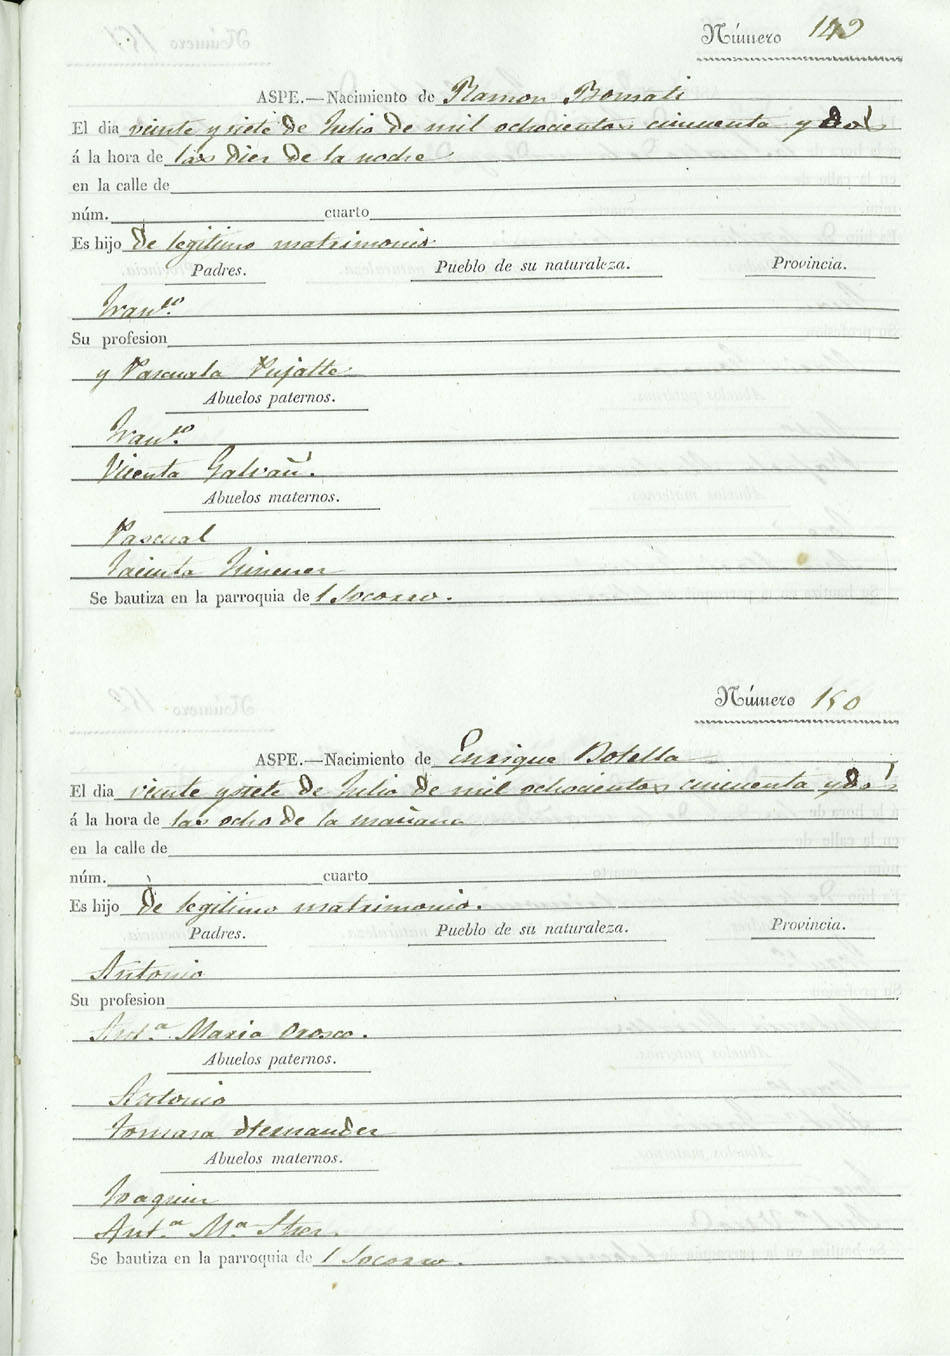 Número 149
ASPE.—Nacimiento de Ramon Bomati
El dia veinte y siete de Julio de mil ochocientos cincuenta y dos
á la hora de las diez de la noche
en la calle de
núm. cuarto
Es hijo de legitimo matrimonio
Padres. Pueblo de su naturaleza. Provincia.
Franco.
Su profesion
y Pascuala Pujalte
Abuelos paternos.
Franco.
Vicenta Galvañ.
Abuelos maternos.
Pascual
Jacinta Gimenez
Se bautiza en la parroquia de l Socorro.
Número 150
ASPE.—Nacimiento de Enrique Botella
El dia veinte y siete de Julio de mil ochocientos cincuenta y dos
á la hora de las ocho de la mañana
en la calle de
núm. cuarto
Es hijo de legitimo matrimonio.
Padres. Pueblo de su naturaleza. Provincia.
Antonio
Su profesion
Ant.ª Maria Orosco.
Abuelos paternos.
Antonio
Tomasa Hernandez
Abuelos maternos.
Joaquin
Ant.ª M.ª
Se bautiza en la parroquia de l Socorro.